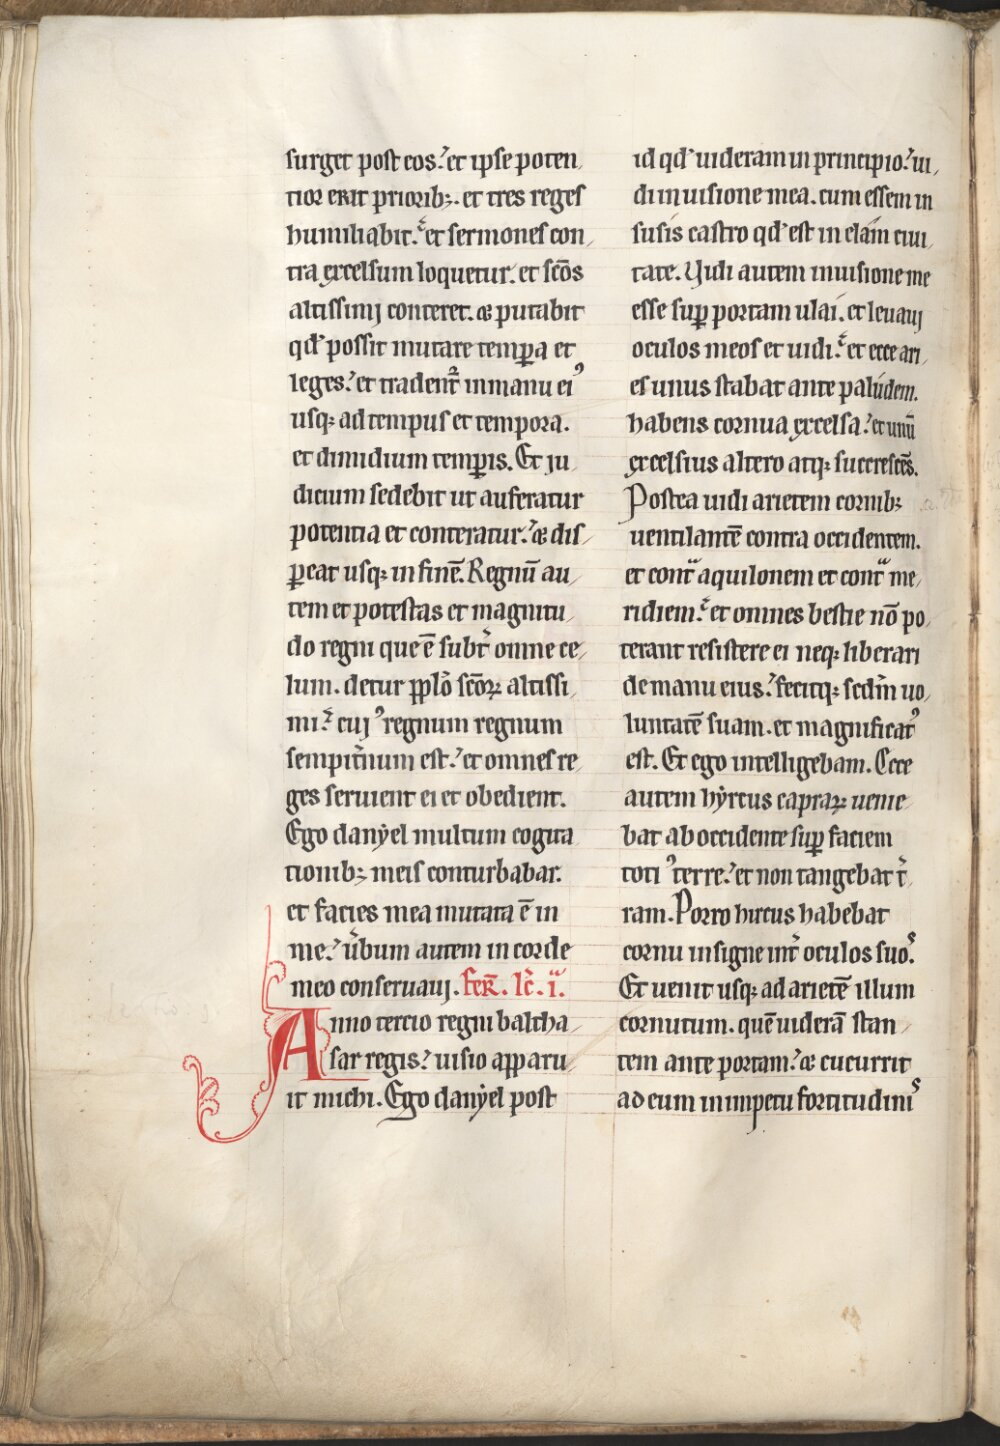 surget post eos. et ipse poten
tior erit priorib⁊. et tres reges
humiliabit. et sermones con
tra excelsum loquetur. et sc̄os
altissimj conteret. & putabit
qd̓ possit mutare temꝑa et
leges. et tradent᷑ in manu eiꝰ
usq⁊ ad tempus et tempora.
et dimidium temꝑis. Et ju
dicium sedebit ut auferatur
potentia et conteratur. & dis
ꝑeat usq⁊ in finē. Regnū au
tem et potestas et magnitu
do regni que ē subt̓ omne ce
lum. detur ꝑꝑlo̓ sc̄oꝝ altissi
mi. cujꝰ regnum regnum
sempit̓num est. et omnes re
ges seruient ei et obedient.
Ego danẏel multum cogita
tionib⁊ meis conturbabar.
et facies mea mutata ē in
me. u̓bum autem in corde
meo conseruauj. fer̄. lc̓. i.
Anno tercio regni baltha
sar regis. uisio aꝑparu
it michi. Ego danẏel post
id qd̓ uideram in principio. ui
di in uisione mea. cum essem in
susis castro qd̓ est in elam ciui
tate. Uidi autem in uisione me
esse suꝑ portam ulai. et leuauj
oculos meos et uidi. et ecce ari
es unus stabat ante paludem.
habens cornua excelsa. et unū
excelsius altero atq⁊ succrescēs.
Postea uidi arietem cornib⁊
uentilantē contra occidentem.
et contᷓ aquilonem et contᷓ me
ridiem. et omnes bestie nō po
terant resistere ei neq⁊ liberari
de manu eius. fecitq⁊ sedm̄ uo
luntatē suam. et magnificatꝰ
est. Et ego intelligebam. Ecce
autem hẏrcus capraꝝ uenie
bat ab occidente suꝑ faciem
totiꝰ terre. et non tangebat t̓
ram. Porro hircus habebat
cornu insigne int̓ oculos suos.
Et uenit usq⁊ ad arietē illum
cornutum. quē uiderā stan
tem ante portam. & cucurrit
ad eum in impetu fortitudinis